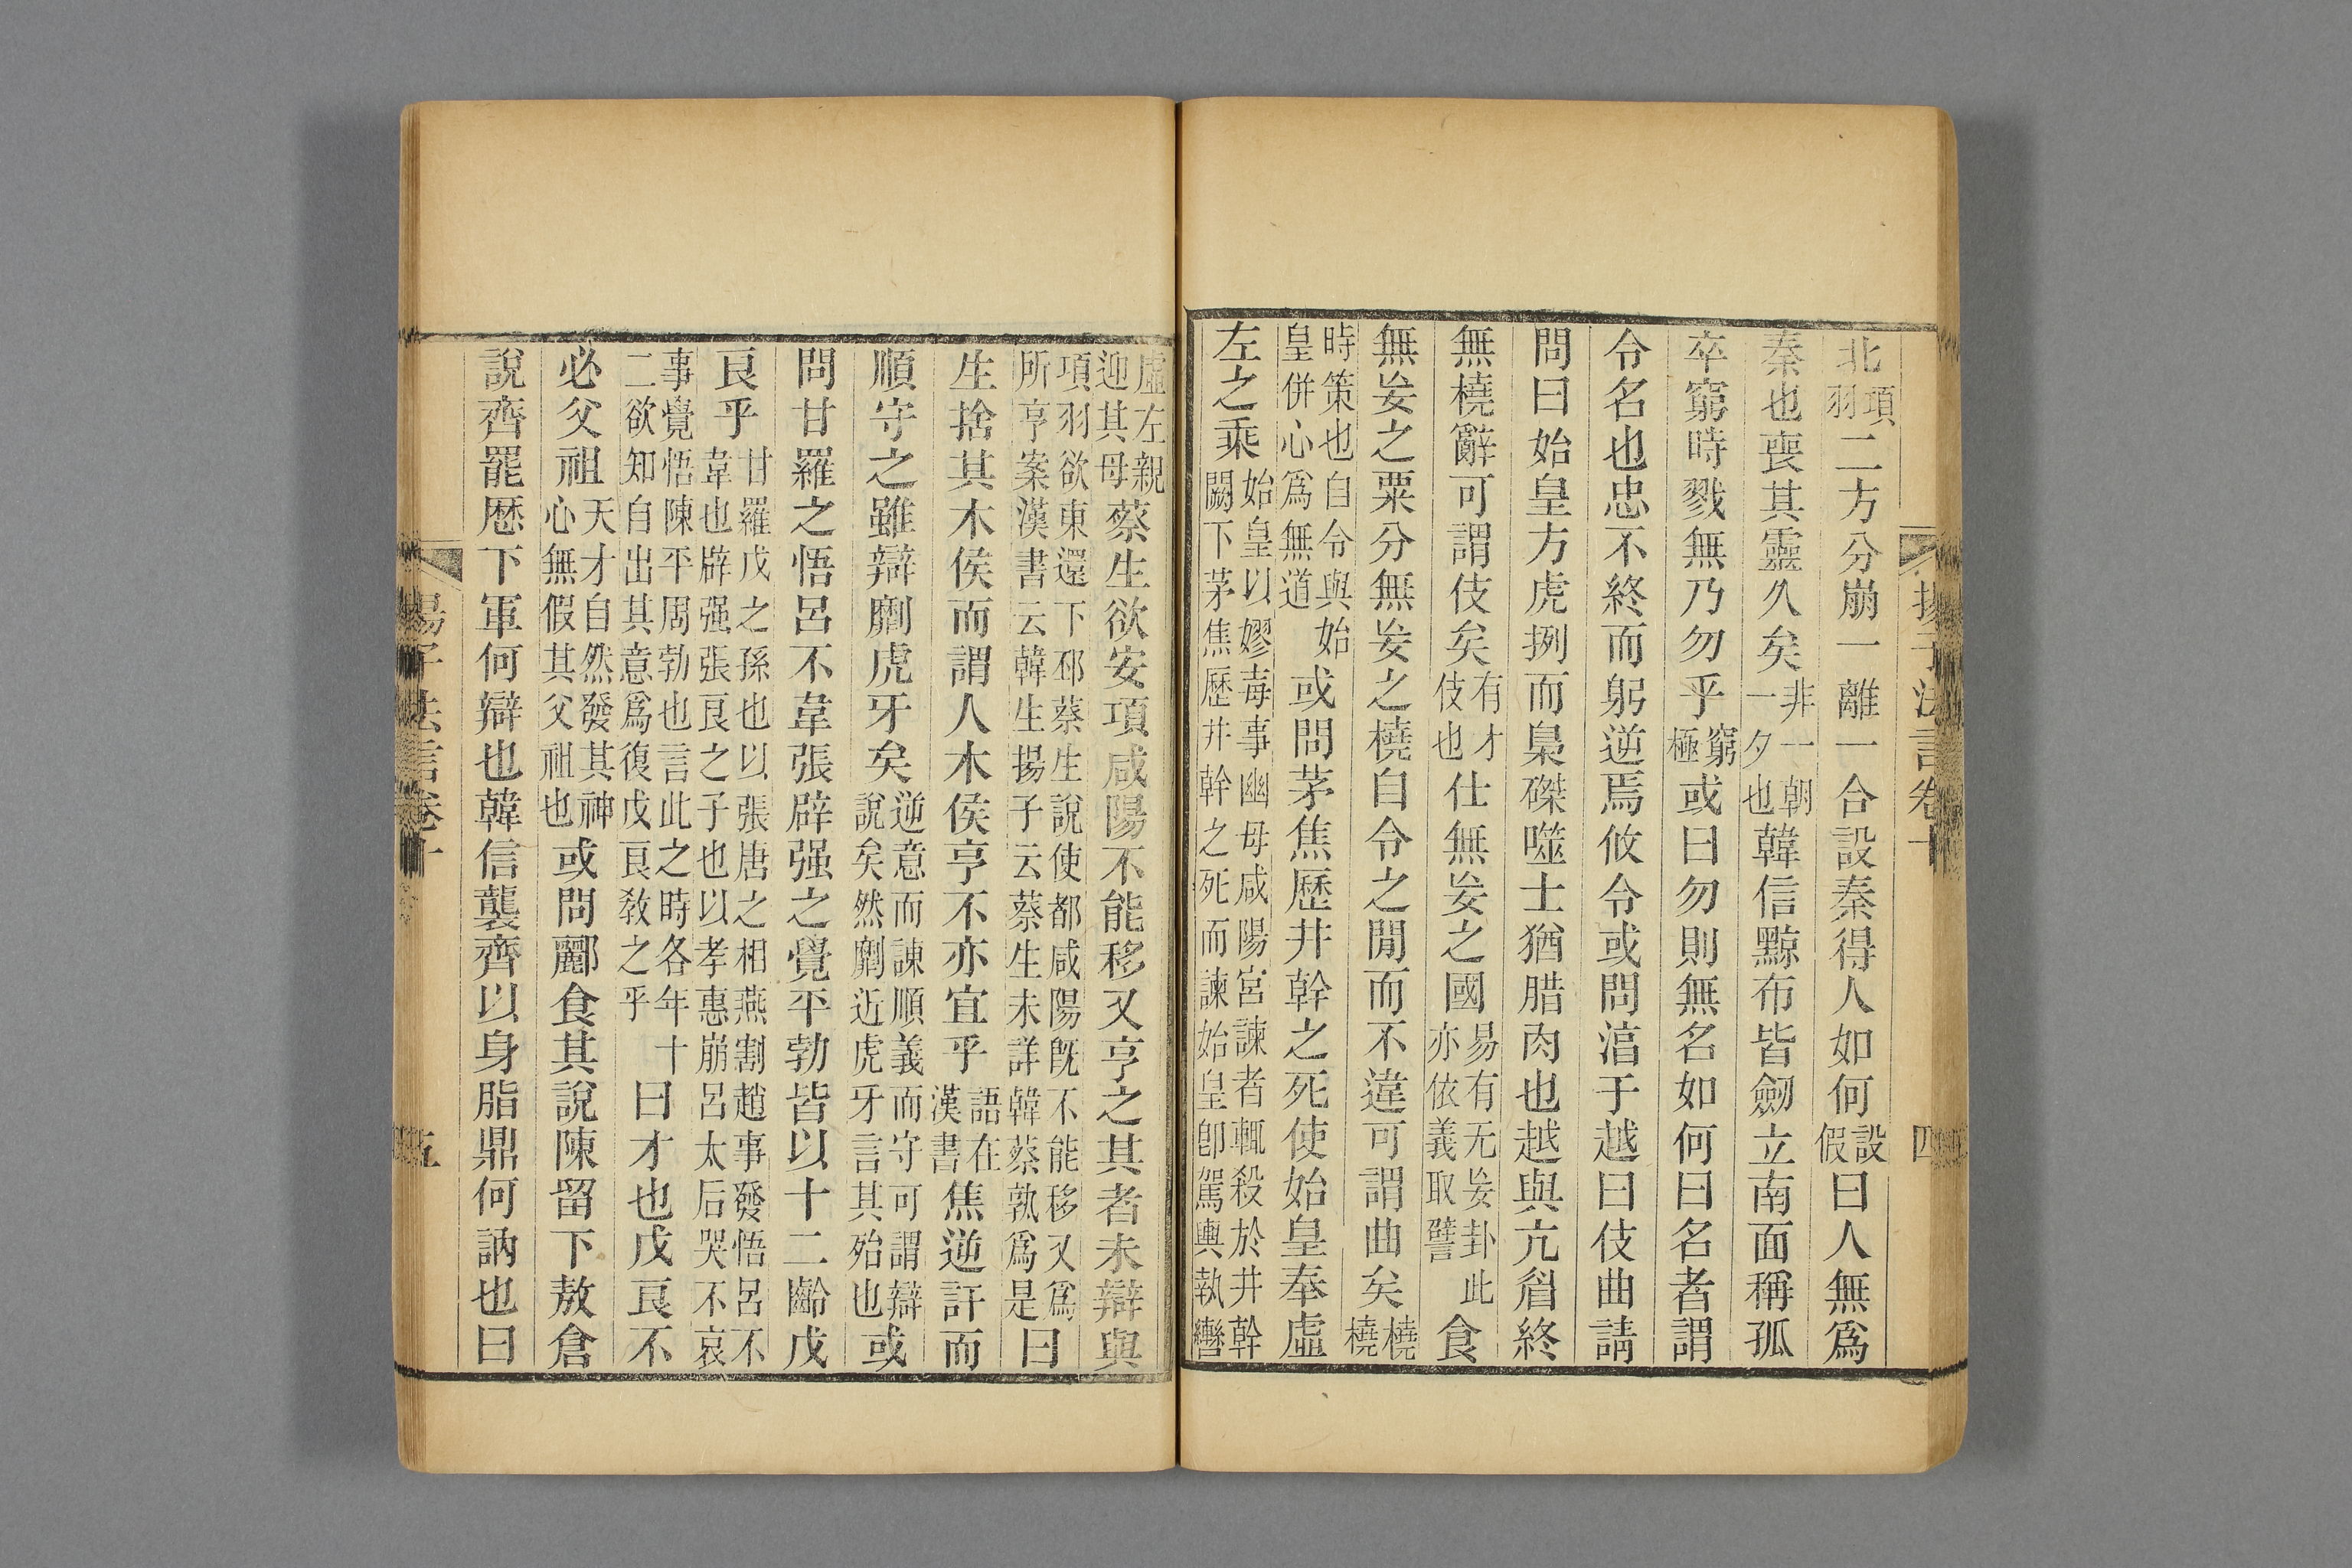 揚子法言卷十 四
北項羽二方分崩一離一合設秦得人如何設假曰人無爲
秦也喪其靈久矣非一朝一夕也韓信黥布皆劒立南面稱孤
卒窮時戮無乃勿乎窮極或曰勿則無名如何曰名者謂
令名也忠不終而躬逆焉攸令或問淊于越曰伎曲請
問曰始皇方虎捌而梟磔噬士猶腊肉也越與亢眉終
無橈辭可謂伎矣有才伎也仕無妄之國易有无妄卦此亦依義取譬食
無妄之粟分無妄之橈自令之閒而不違可謂曲矣橈橈
時策也自令與始皇併心爲無道或問茅焦歷井幹之死使始皇奉虛
左之乘始皇以嫪毐事幽母咸陽宮諫者輒殺於井幹闕下茅焦歷井幹之死而諫始皇卽駕輿執轡
虛左親迎其母蔡生欲安項咸陽不能移又亨之其者未辯與
項羽欲東還下邳蔡生說使都咸陽旣不能移又爲所亨案漢書云韓生揚子云蔡生未詳韓蔡孰爲是曰
生捨其木侯而謂人木侯亨不亦宜乎語在漢書焦逆訐而
順守之雖辯劘虎牙矣逆意而諫順義而守可謂辯說矣然劘近虎牙言其殆也或
問甘羅之悟呂不韋張辟强之覺平勃皆以十二齡戊
良乎甘羅戊之孫也以張唐之相燕割趙事發悟呂不韋也辟强張良之子也以孝惠崩呂太后哭不哀
事覺悟陳平周勃也言此之時各年十二欲知自出其意爲復戊良敎之乎曰才也戊良不
必父祖天才自然發其神心無假其父祖也或問酈食其說陳留下敖倉
說齊罷歷下軍何辯也韓信襲齊以身脂鼎何訥也曰
揚子法言卷十 五